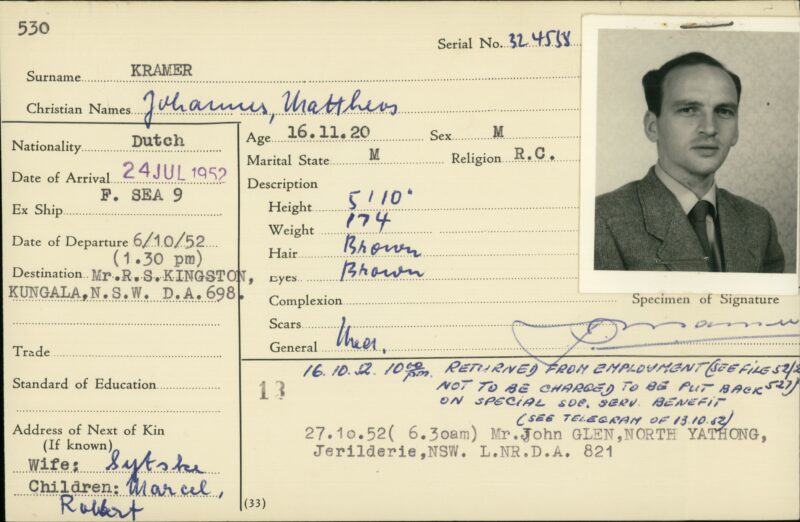 530
Serial No. 32 4538
Surname KRAMER
Christian Names Johannes, Mattheos
Nationality Dutch
Date of Arrival 24 JUL 1952
F. SEA 9
Ex Ship
Date of Departure 6/10/52
(1.30 pm)
Destination Mr.R.S.KINGSTON,
KUNGALA,N.S.W. D.A.698.
Trade
Standard of Education
Address of Next of Kin
(If known)
Wife: Sytske
Children: Marcel,
Robert
Age 16.11.20 Sex M
Marital State M Religion R.C.
Description
Height 5'10"
Weight 174
Hair Brown
Eyes Brown
Complexion
Scars
General
Specimen of Signature
13
16.10.52. 10 00 pm. RETURNED FROM EMPLOYMENT (SEE FILE 52/2
NOT TO BE CHARGED TO BE PUT BACK 527)
ON SPECIAL SOC. SERV. BENEFIT
(SEE TELEGRAM OF 13.10.52)
27.10.52( 6.30am) Mr.John GLEN,NORTH YATHONG,
Jerilderie,NSW. L.NR.D.A. 821
(33)